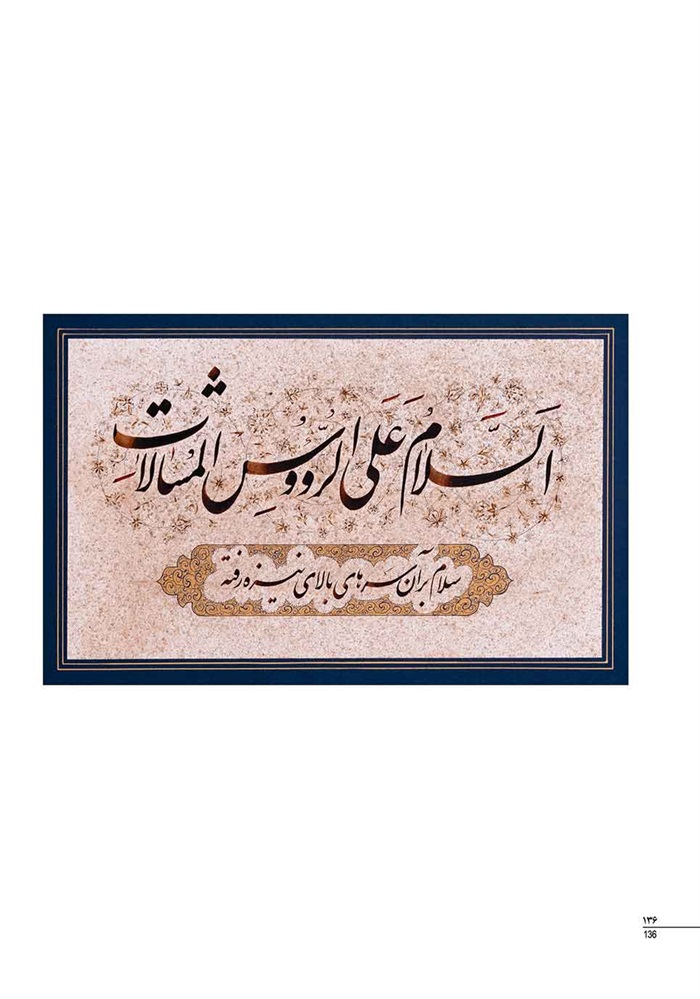 اَلسَّلامُ عَلَی الرُّؤُوسِ المُشالاتِ
سلام بر آن سرهای بالای نیزه رفته
۱۳۶
136